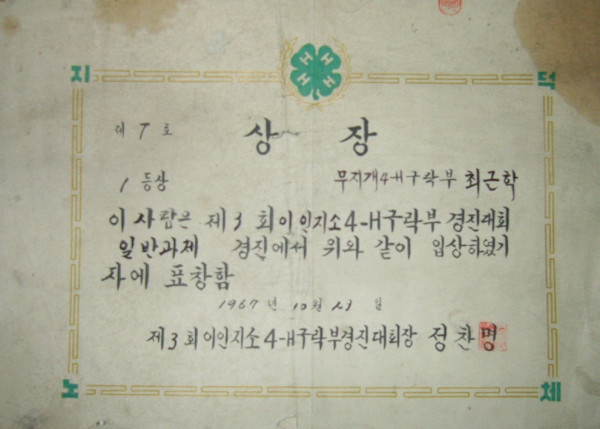 H H H H
지 덕
제 7 호
상 장
1 등상 무지개4-H구락부 최근학
이 사람은 제3회이인지소4-H구락부 경진대회
일반과제 경진에서 위와 같이 입상하였기
자에 표창함
1967년 10월 일
제3회이인지소4-H구락부경진대회장 정찬명
노 체